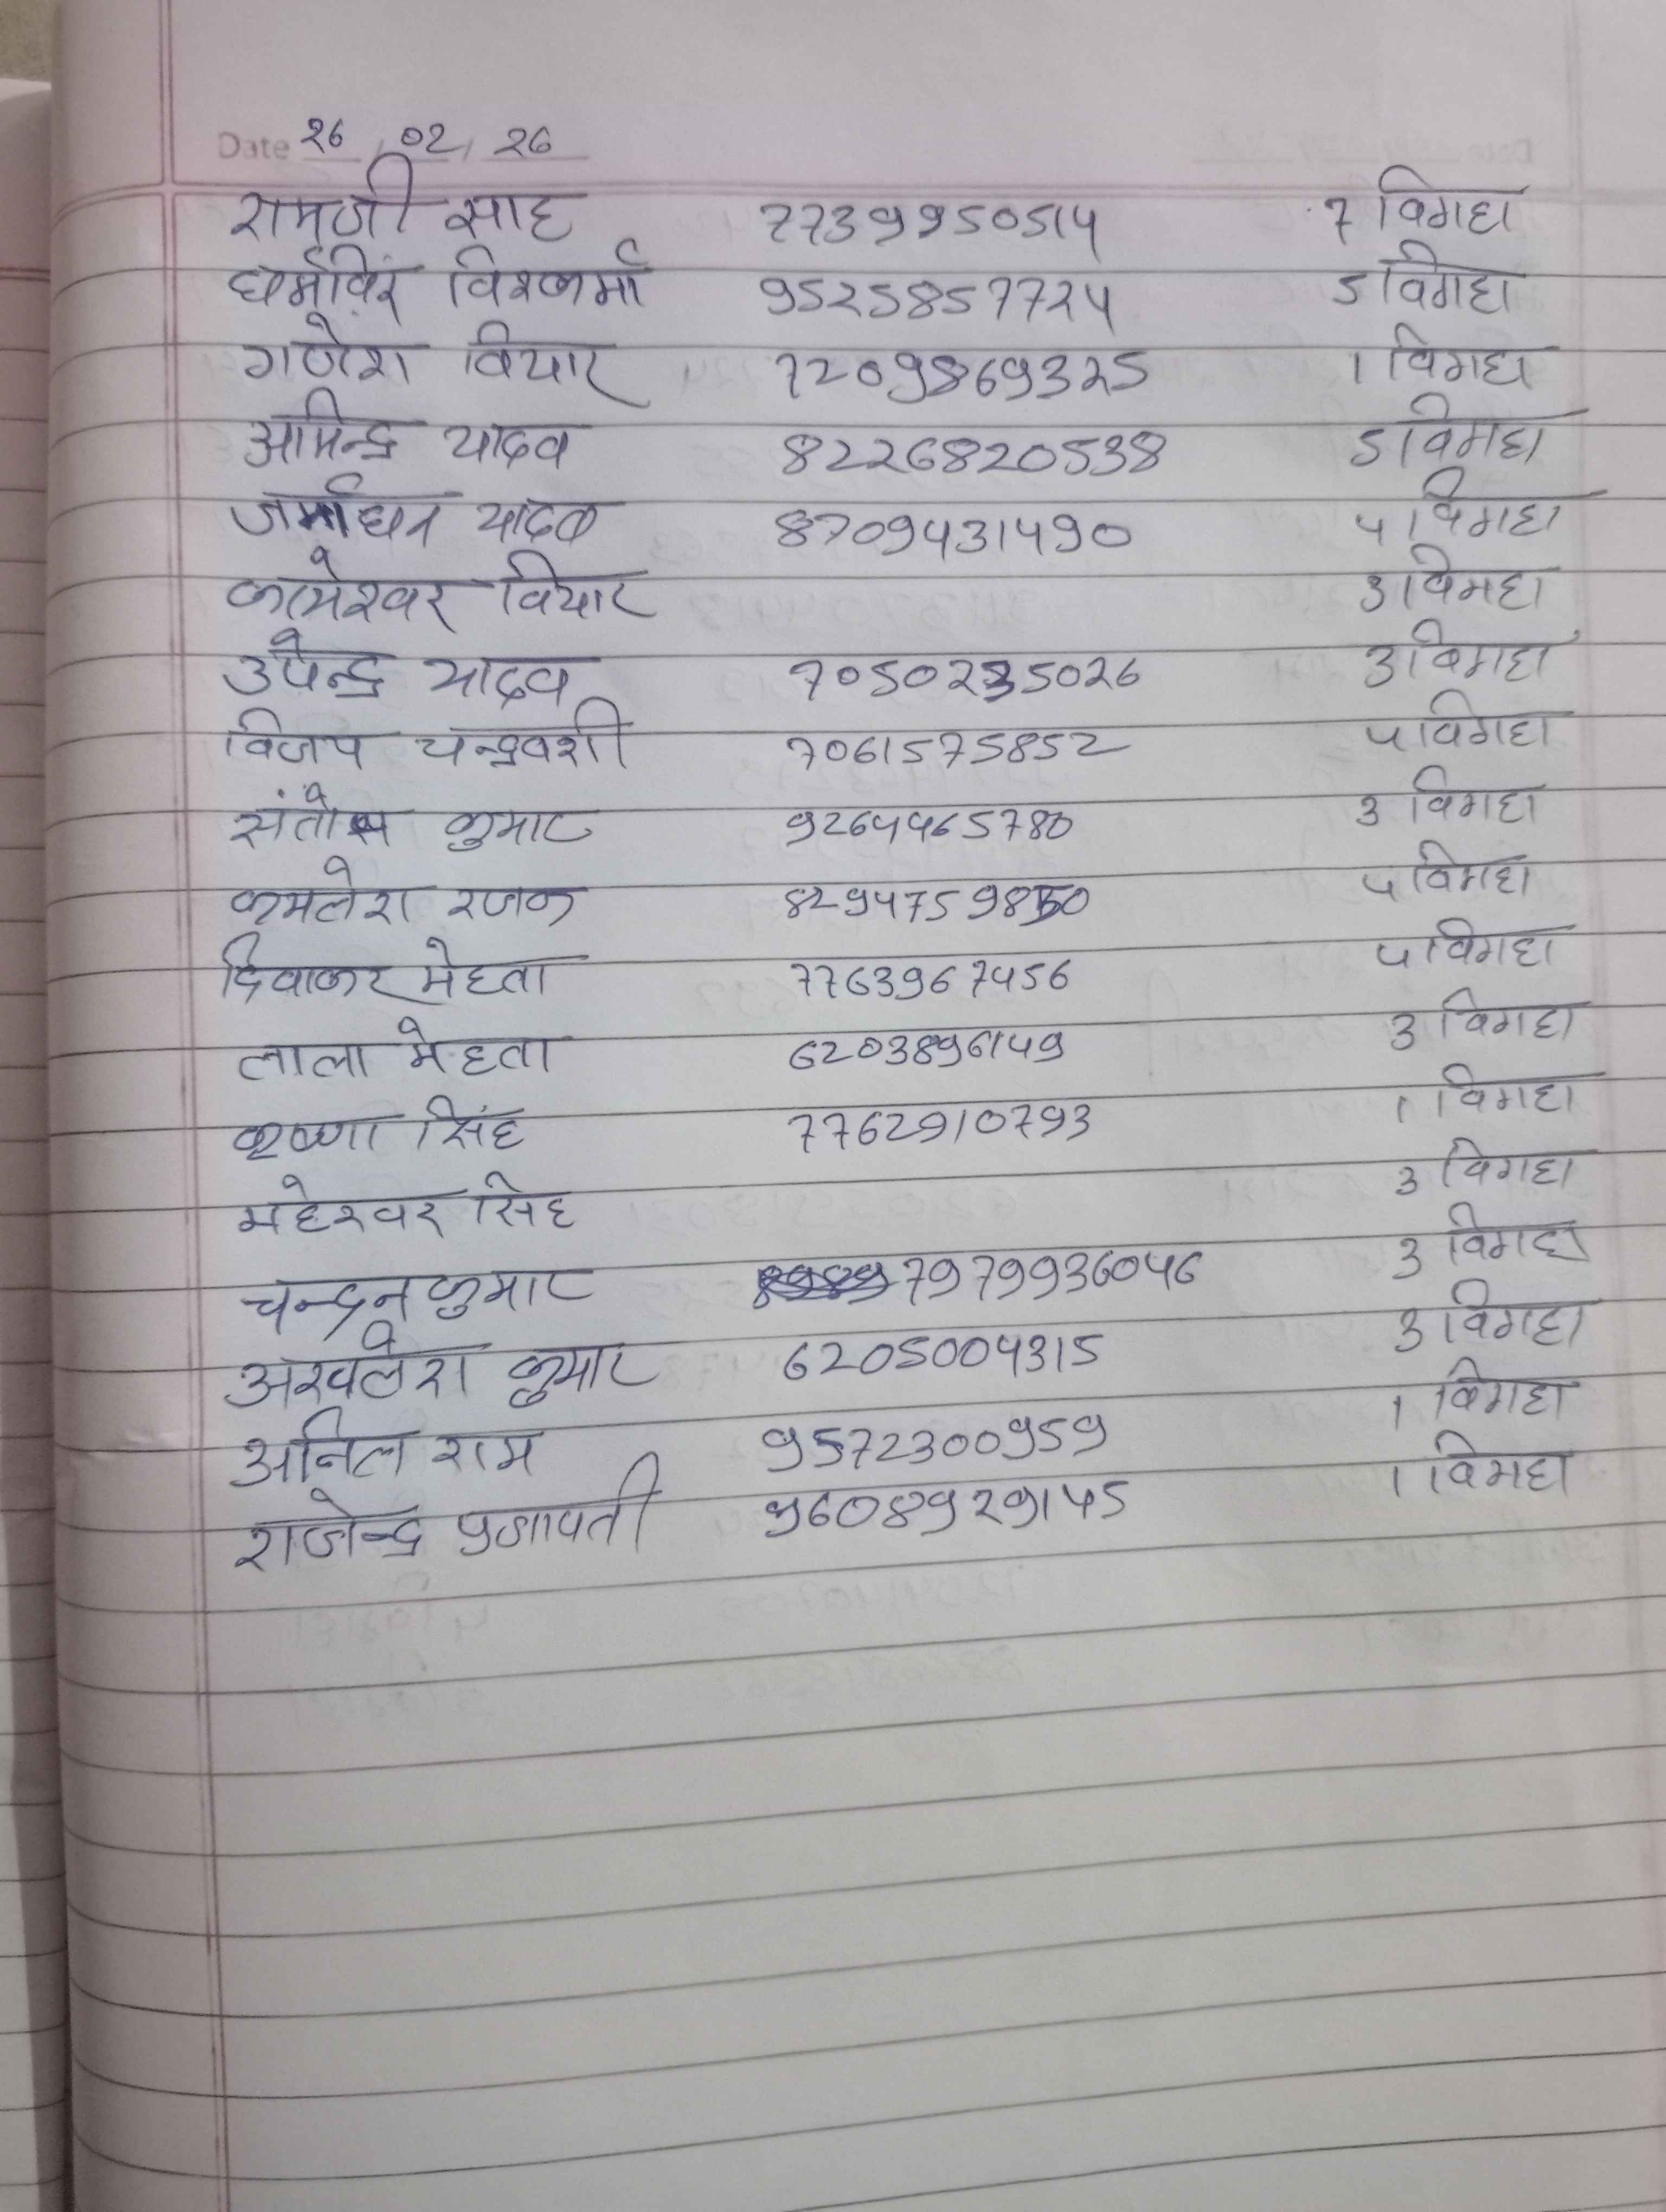 Date 26 / 02 / 26
रामजी साह 7739950514 7 विगहा
धर्मविरं विश्कर्मा 9525857724 5 विगहा
गणेश वियार 7209869325 1 विगहा
आमिन्द्र यादव 8226820538 5 विगहा
यादव 8709431490 4 विगहा
कामेश्वर वियार 3 विगहा
उपेन्द्र यादव 7050235026 3 विगहा
विजय चन्द्रवशी 7061575852 4 विगहा
संतोष कुमार 9264465780 3 विगहा
कमलेश रजक 4 विगहा
दिवाकर मेहता 7763967456 4 विगहा
लाला मेहता 6203896149 3 विगहा
कृष्णा सिंह 7762910793 1 विगहा
महेश्वर सिह 3 विगहा
चन्द्रन कुमार 7979936046 3 विगहा
अखलेश कुमार 6205004315 3 विगहा
अनिल राम 9572300959 1 विगहा
राजेन्द्र प्रजापती 9608929145 1 विगहा